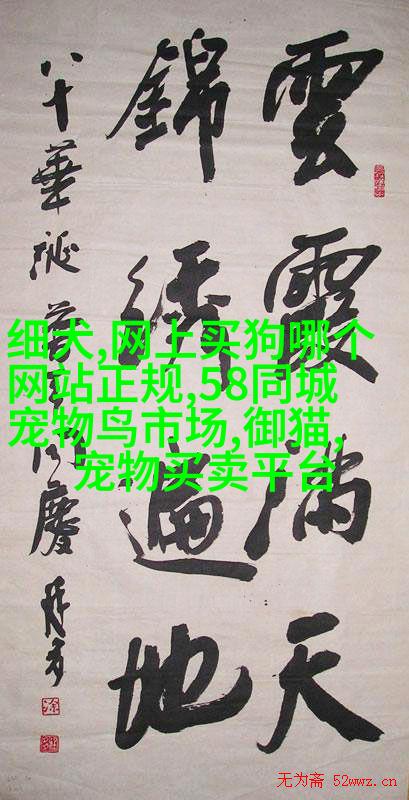 雲霞滿天
錦綉遍地
八十華诞普天同慶
细犬,网上买狗哪个
网站正规,58同城
宠物鸟市场,御猫,
宠物买卖平台
无为斋 52wwz.cn